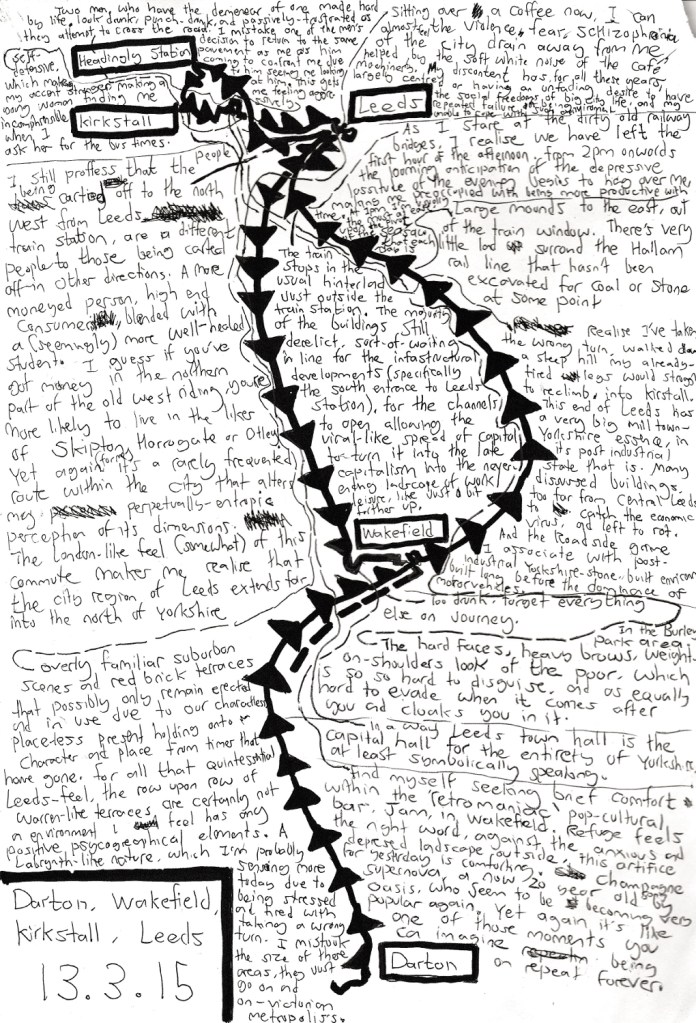 Two men, who have the demeanor of one made hard
by life, look drunk, punch-drunk, and passively-frustrated as
they attempt to cross the road. I mistake one of the men's
decision to return to the same
pavement as me as him
coming to confront me due
to him seeing me looking
at him. This gets
me feeling
Self-
defensive,
which makes
my accent stronger making a
young woman finding me
incomprehensible
when I
ask her for the bus times.
Headingly Station
Kirkstall
Leeds
Sitting over a coffee now, I can
almost feel the violence, fear, schizophrenia
of the city drain away from me
helped by the soft white noise of the café
machinery. My discontent has for all these years
largely centred on having an unfading desire to have
the social freedoms of big city life, and my
repeated failure of being
unable to cope with such
As I stare at the dirty old railway
bridges, I realise we have left the
first hour of the afternoon, from 2pm onwards
the looming anticipation of the depressive
possitude of the evening begins to hang over me,
making me preoccupied with being more productive with
time.
Large mounds to the east, out
of the train window. There's very
little land surround the Hallam
rail line that hasn't been
excavated for coal or stone
at some point
I still proffess that the people
being carted off to the north
west from Leeds
train station, are a different
people to those being carted
off in other directions. A more
moneyed person, high end
consumer, blended with
a (seemingly) more well-heeled
student. I guess if you've
got money in the northern
part of the old west riding, you're
more likely to live in the likes
of Skipton, Harrogate or Otley.
Yet again, it's a rarely frequented
route within the city that alters
my perpetually-entropic
perception of its dimensions.
The London-like feel (somewhat) of this
commute makes me realise that
the city region of Leeds extends far
into the north of Yorkshire
The train
stops in the
usual hinterland
just outside the
train station. The majority
of the buildings still
derelict, sort-of-waiting
in line for the infastructural
developments (specifically
the south entrance to Leeds
Station), for the channels
to open allowing the
viral-like spread of capital
to turn it into the late
capitalism into the never
ending landscape of work/
leisure, like just a bit
further up.
Realise I've taken
the wrong turn, walked down
a steep hill my already-
tired legs would struggle
to reclimb, into Kirstall.
This end of Leeds has
a very big mill town-
Yorkshire essence, in
its post industrial
state that is. Many
disused buildings,
too far from Central Leeds
to catch the economic
virus, and left to rot.
And the roadside grime
I associate with post-
industrial Yorkshire-stone-built environ
built long before the dominance of
motorvehicles.
Wakefield
Too drunk, forget everything
else on Journey.
In the Burley
Park area:
The hard faces, heavy brows, weight-
on-shoulders look of the poor, which
is so so hard to disguise, and as equally
hard to evade when it comes after
you and cloaks you in it.
In a way Leeds town hall is the
capital hall for the entirety of Yorkshire,
at least symbolically speaking.
Find myself seeking brief comfort
within the retromaniac, pop-cultural
bar, Jam, in Wakefield. Refuge feels
the right word, against the anxious and
depressed landscape outside, this artifice
for yesterday is comforting. Champagne
supernova, a now 20 year old song by
oasis, who seem to be becoming very
popular again. Yet again it's like
one of those moments you
can imagine being
on repeat forever.
Overly familiar suburban
scenes and red brick terraces
that possibly only remain erected
and in use due to our characterless
placeless present holding onto
character and place from times that
have gone. For all that quintessential
Leeds-feel, the row upon row of
Warren-like terraces, are certainly not
an environment I feel has any
positive psycogeographical elements. A
Labyrinth-like nature, which I'm probably
sensing more
today due to
being stressed
and tired with
taking a wrong
turn. I mistook
the size of these
areas, they just
go on and
on - victorian
metropolis's.
Darton
Darton, Wakefield,
Kirkstall, Leeds
13.3.15